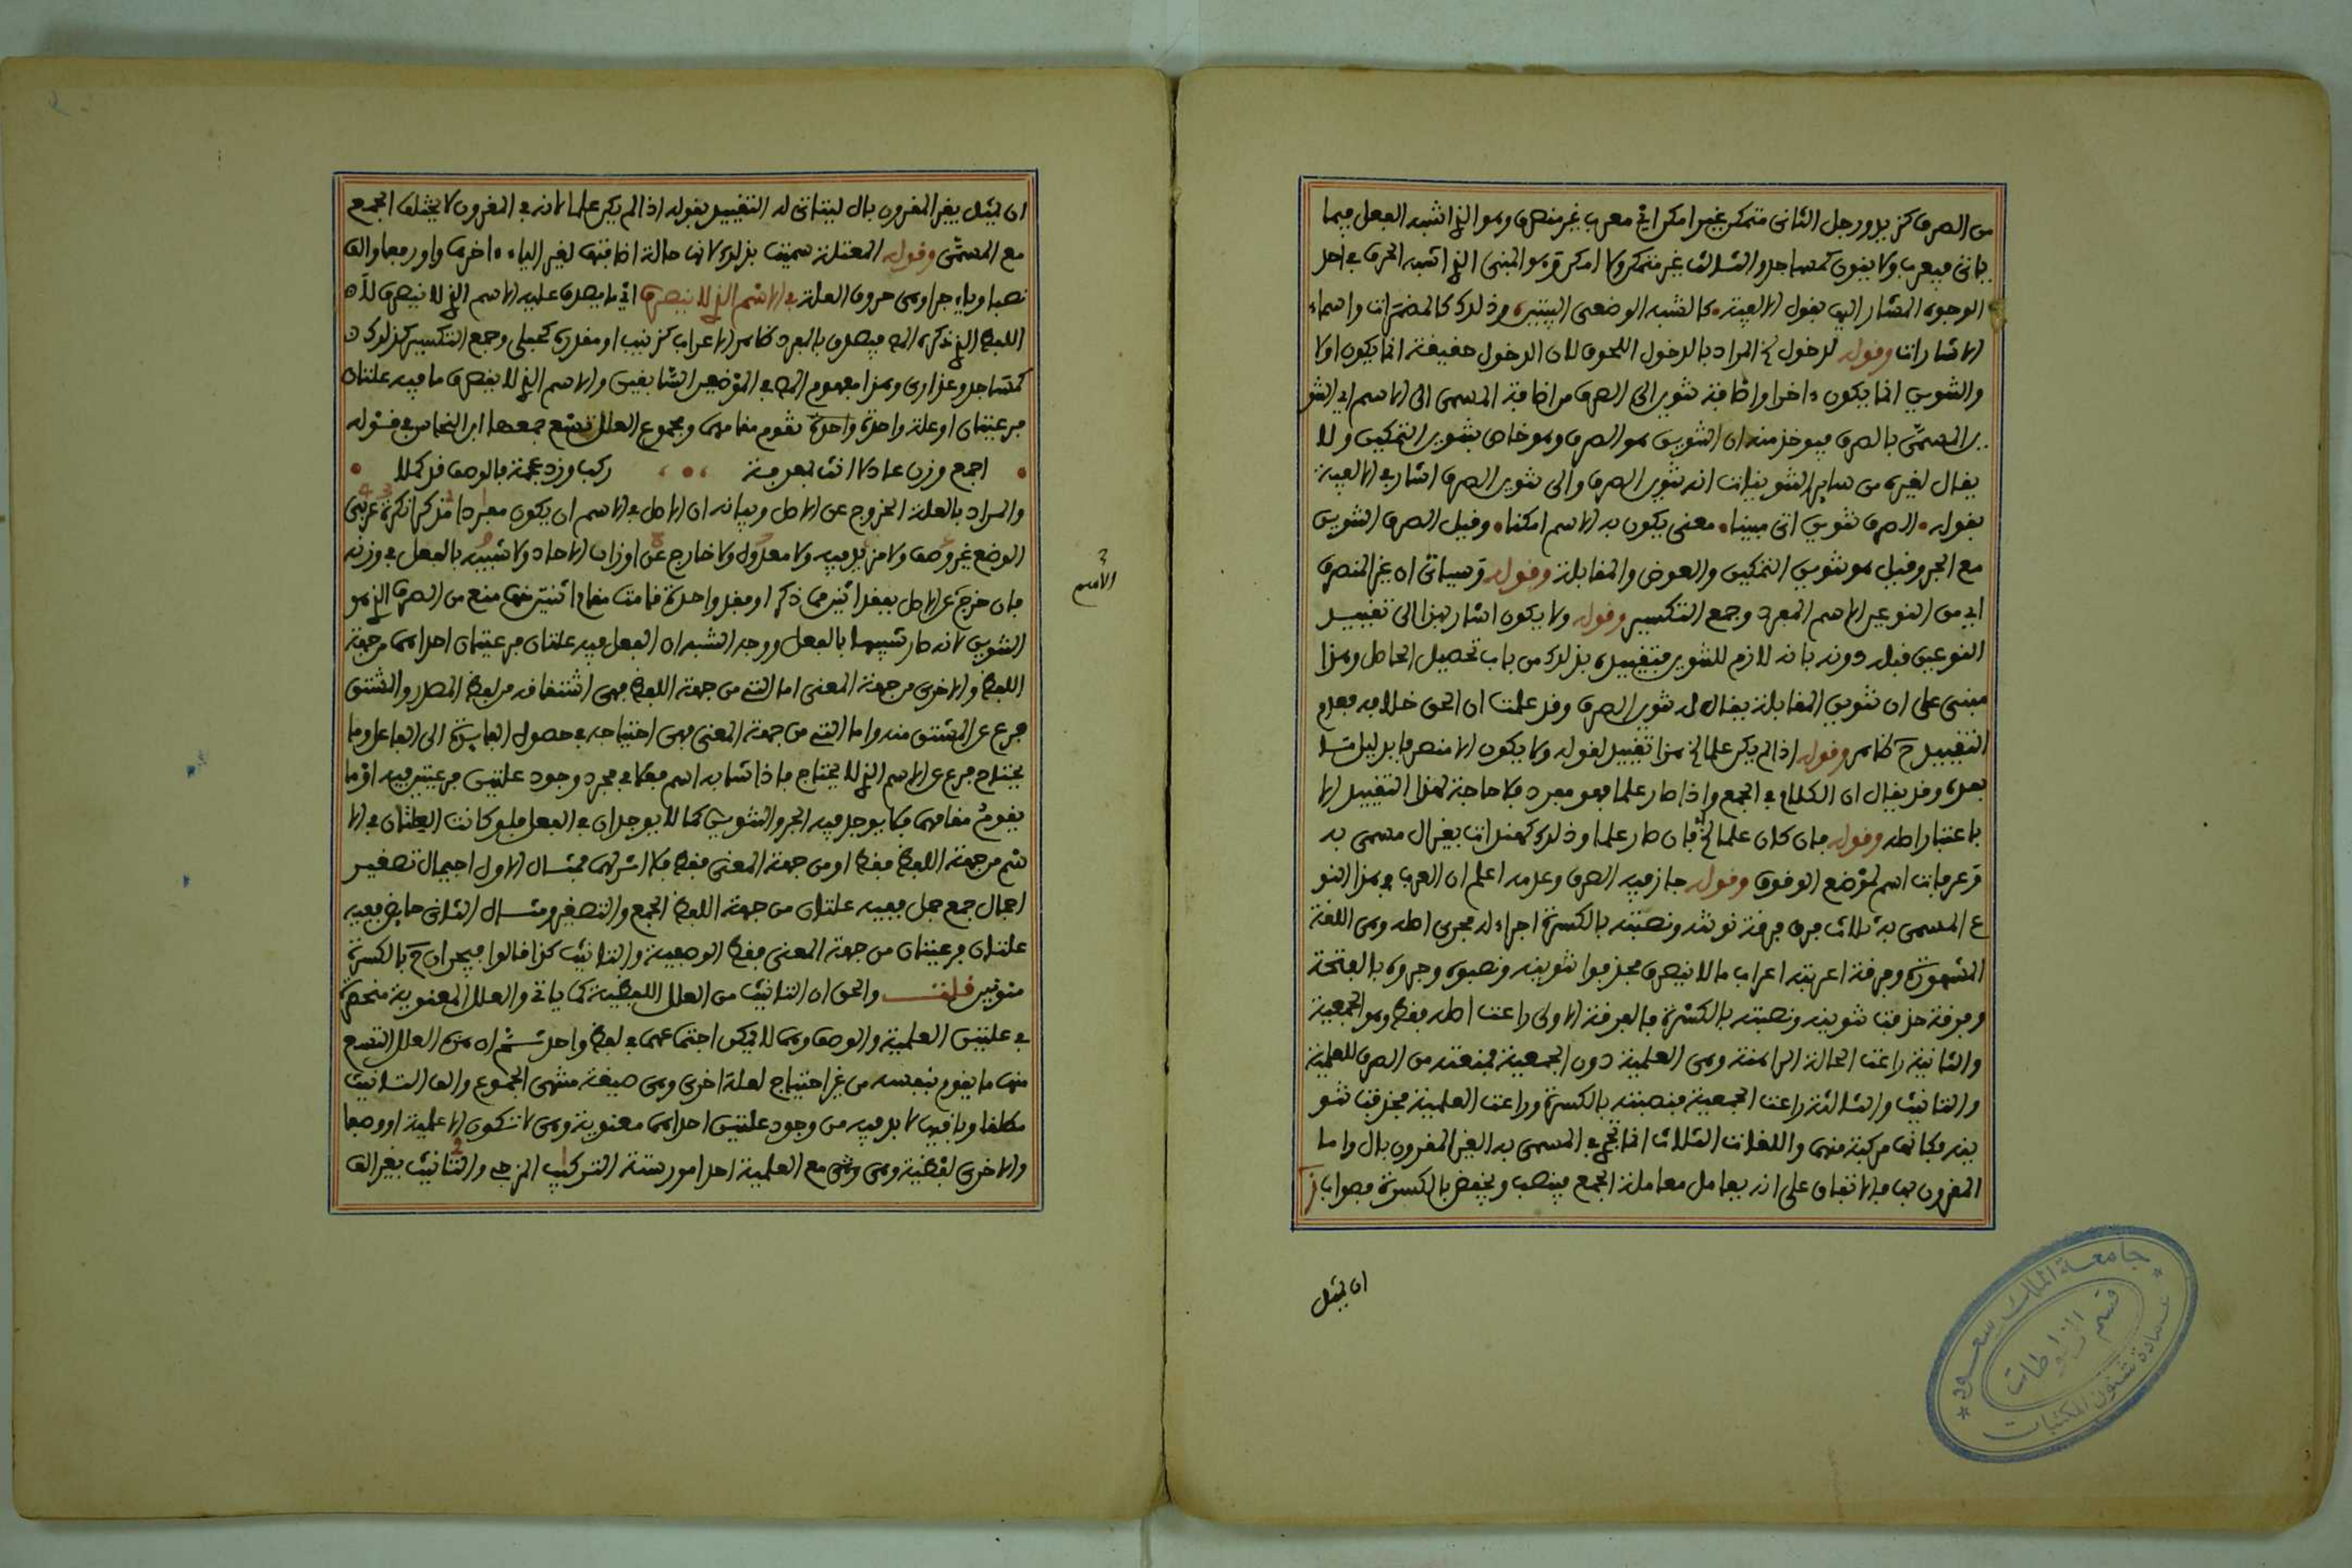 من الصرف كزيد ورجل الثانى متمكن غير امكن اي معرب غير منصرف وهو الذي اشبه الفعل فيما
ياتى فيعرب ولا ينون كمساجد والثالث غير متمكن ولا امكن وهو المبنى الذي اشبه الحرف في احد
الوجوه المشار اليها بقول الالفية كالشبه الوضعى البيتين وذلك كالمضمرات واسماء
الاشارات وقوله لدخول الخ المراد بالدخول اللحوق لان الدخول حقيقة انما يكون اولا
والتنوين انما يكون ءاخرا واضافة تنوين الى الصرف من اضافة المسمى الى الاسم اي التنو
ين المسمى بالصرف فيوخذ منه ان التنوين هو الصرف وهو خاص بتنوين التمكين ولا
يقال لغيره من ساير التنوينات انه تنوين الصرف والى تنوين الصرف اشار في الالفية
بقوله الصرف تنوين اتى مبينا معنى به يكون الاسم امكنا وقيل الصرف التنوين
مع الجر وقيل هو تنوين التمكين والعوض والمقابلة وقوله وسياتى ان غير المنصرف
اي من النوعين الاسم المفرد وجمع التكسير وقوله ولا يكون اشار بهذا الى تقييد
النوعين قبله دونه بانه لازم للتنوين فتقييده بذلك من باب تحصيل الحاصل وهذا
مبنى على ان تنوين المقابلة يقال له تنوين الصرف وقد علمت ان الحق خلافه فعدم
التقييد ح ظاهر وقوله اذا لم يكن علما الخ هذا تقييد لقوله ولا يكون الا منصرفا بدليل مثله
بعده وقد يقال ان الكلام في الجمع واذا صار علما فهو مفرد فلا حاجة لهذا التقييد الا
باعتبار اصله وقوله فان كان علما الخ فان صار علما وذلك كهندات يقال مسمى به
وعرفات اسم لموضع الوقوف وقوله جاز فيه الصرف وعدمه اعلم ان العرب في هذا النو
ع المسمى به ثلاث فرق فرقة نونته ونصبته بالكسرة اجراء له مجرى اصله وهى اللغة
المشهورة وفرقة اعربته اعراب ما لا ينصرف فحذفوا تنوينه ونصبوه وجروه بالفتحة
وفرقة حذفت تنوينه ونصبته بالكسرة فالفرقة الاولى راعت اصله فقط وهو الجمعية
والثانية راعت الحالة الراهنة وهى العلمية دون الجمعية فمنعته من الصرف للعلمية
والتانيث والثالثة راعت الجمعية فنصبته بالكسرة وراعت العلمية فحذفت تنو
ينه فكانها مركبة منهما واللغات الثلاث انما تجي في المسمى به الغير المقرون بال واما
المقرون بها فالاتفاق على انه يعامل معاملة الجمع فينصب ويخفض بالكسرة فصواب
ان يمثل
جامعة الملك سعود
قسم المخطوطات
عمادة شئون المكتبات
ان يمثل بغير المقرون بال ليتاتى له التقييد بقوله اذا لم يكن علما لانه في المقرون لا يختلف الجمع
مع المسمى وقوله المعتلة سميت بذلك لانها حالة اضافتها لغير الياء ءاخرها واو رفعا والف
نصبا وياء جرا وهى حروف العلة في الاسم الذي لا ينصرف اي ما يصدق عليه الاسم الذي لا ينصرف لان
اللفظ الذي ذكره المص فيصدق بالمفرد ظاهر الاعراب كزينب او مقدره كحبلى وجمع التكسير كذلك
كمساجد وعذارى وهذا مفهوم المص في الموضعين السابقين والاسم الذي لا ينصرف ما فيه علتان
فرعيتان او علة واحدة تقوم مقامهما ومجموع العلل تسع جمعها ابن النحاس في قوله
اجمع وزن عادلا انث بمعرفة ركب وزد عجمة فالوصف قد كملا
والمراد بالعلة الخروج عن الاصل وبيانه ان الاصل في الاسم ان يكون مفردا مذكرا نكرة عربى
الوضع غير وصف ولا مزيد فيه ولا معدول ولا خارج عن اوزان الاحاد ولا شبيه بالفعل في وزنه
فان خرج عن الاصل بفقد اثنين مما ذكر او فقد واحدة قامت مقام اثنتين منها منع من الصرف الذي هو
التنوين لانه صار شبيها بالفعل ووجه الشبه ان الفعل فيه علتان فرعيتان احداهما من جهة
اللفظ والاخرى من جهة المعنى اما التى من جهة اللفظ فهى اشتقاقه من لفظ المصدر والمشتق
فرع عن المشتق منه واما التى من جهة المعنى فهى احتياجه في حصول الفايدة الى الفاعل وما
يحتاج فرع عن الاسم الذي لا يحتاج فاذا شابه اسم فعلا في مجرد وجود علتين فرعيتين فيه او ما
يقوم مقامهما فلا يوجد فيه الجر والتنوين كما لا يوجدان في الفعل فلو كانت العلتان في الا
سم من جهة اللفظ فقط او من جهة المعنى فقط فلا اثر لهما فمثال الاول اجيمال تصغير
اجمال جمع جمل ففيه علتان من جهة اللفظ الجمع والتصغير ومثال الثانى حايض ففيه
علتان فرعيتان من جهة المعنى فقط الوصفية والتانيث كذا قالوا فيجران ح بالكسرة
منونين قلت والحق ان التانيث من العلل اللفظية كما ياتى والعلل المعنوية منحصرة
في علتين العلمية والوصف وهما لا يمكن اجتماعهما في لفظ واحد ثم ان هذه العلل التسع
منها ما يقوم بنفسه من غير احتياج لعلة اخرى وهى صيغة منتهى الجموع والف التانيث
مطلقا وباقيها لا بد فيه من وجود علتين احداهما معنوية وهى لا تكون الا علمية او وصفا
والاخرى لفظية وهى مع العلمية احد امور ستة التركيب المزجى والتانيث بغير الف
الاسم